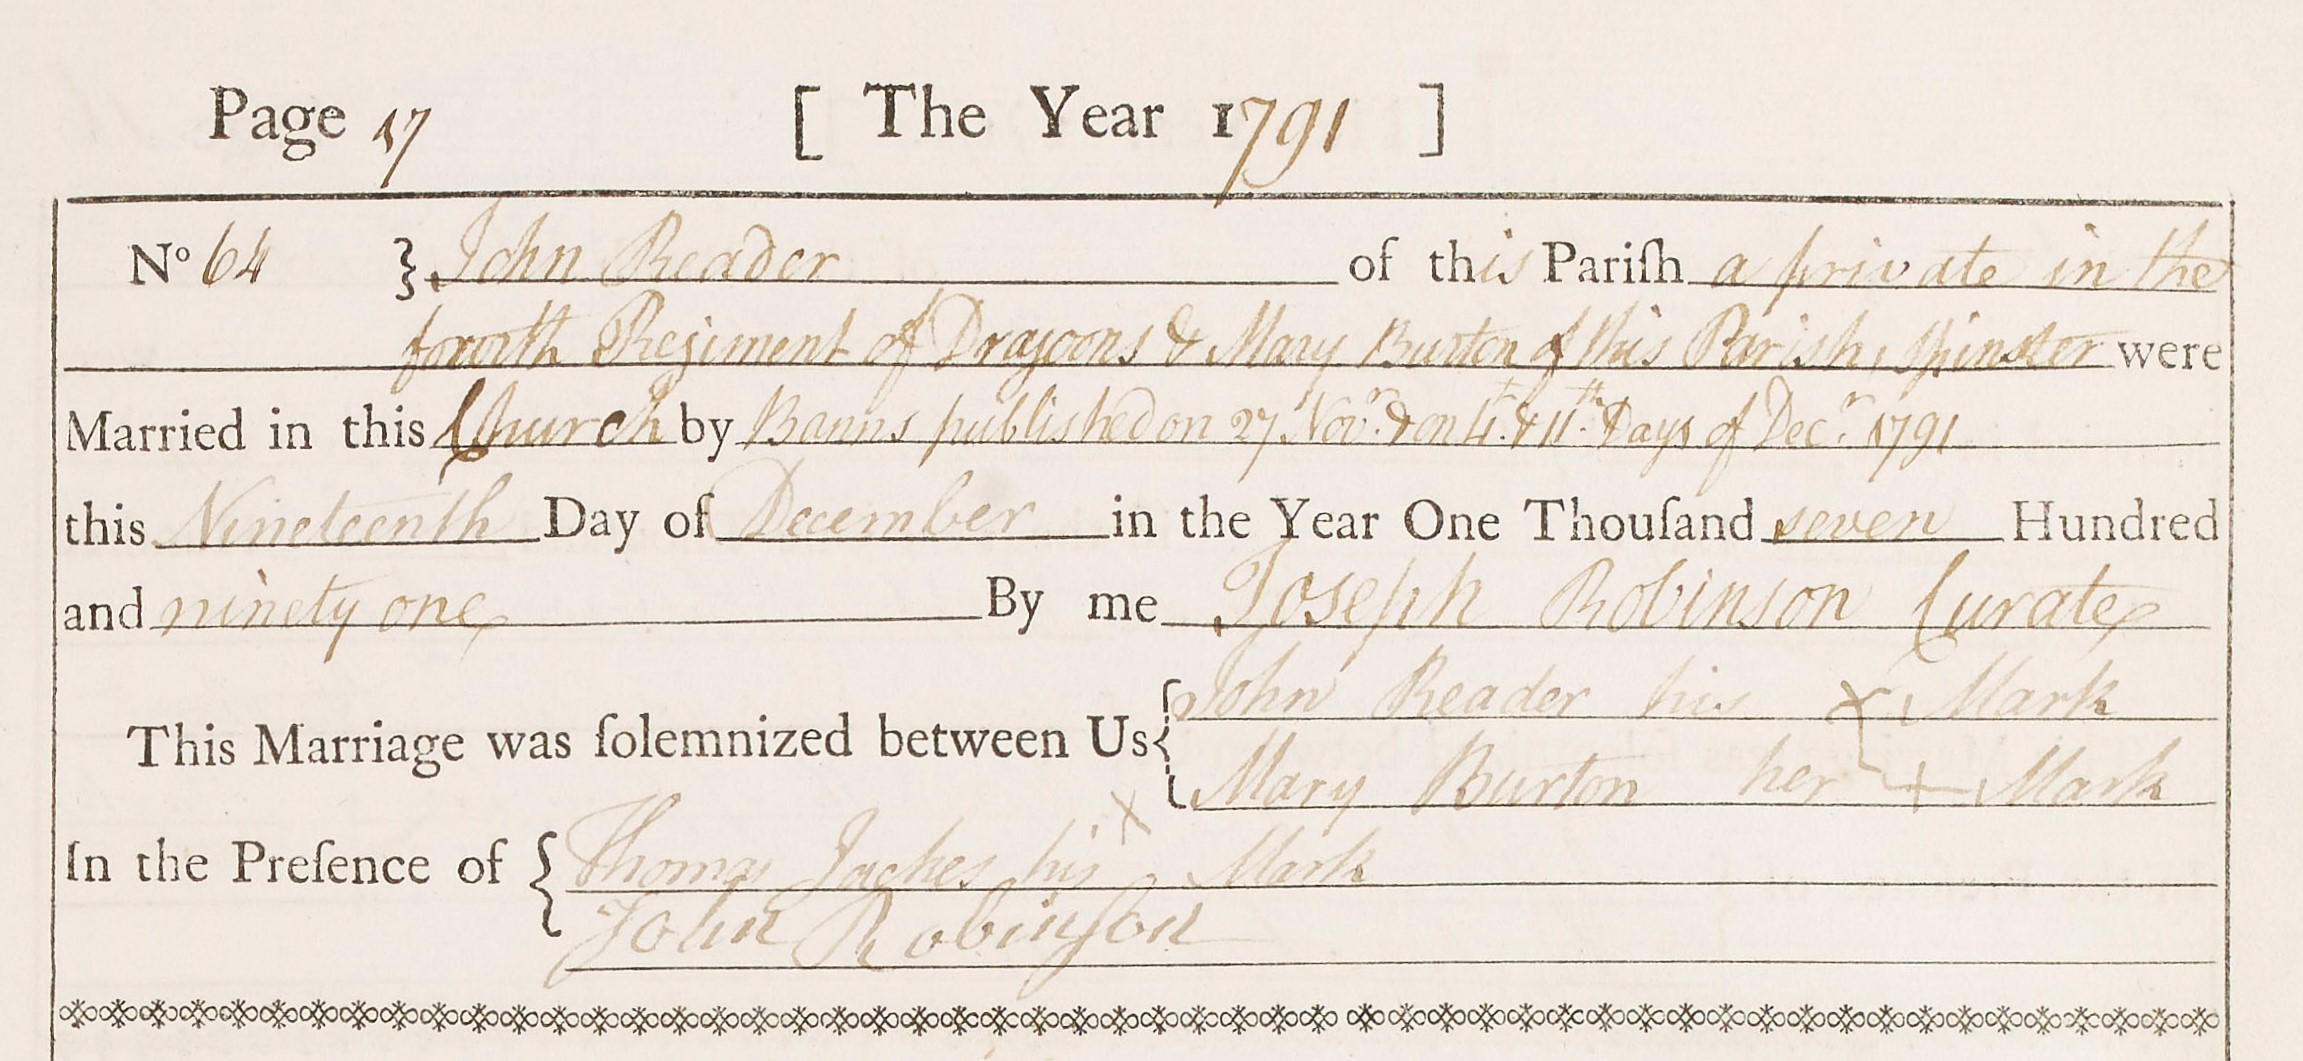 Page 17 [ The Year 1791 ]
No 64 } John Reader of this Pariſh a private in the
fourth Regiment of Dragoons & Mary Burton of this Parish, spinster were
Married in this Church by Banns published on 27 Novr. & on 4th & 11th Days of Decr. 1791
this Nineteenth Day of December in the Year One Thouſand seven Hundred
and ninety one By me Joseph Robinson Curate
This Marriage was ſolemnized between Us { John Reader his X Mark
Mary Burton her + Mark
In the Preſence of { Thomas Jackes his X Mark
John Robinſon